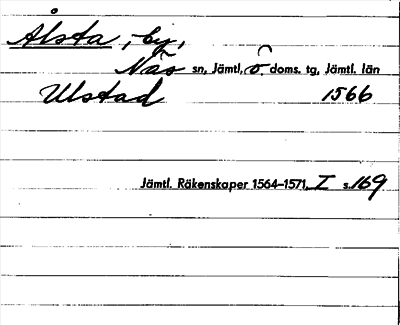 Ålsta, by,
Näs sn, Jämtl, ö. doms. tg, Jämtl. län
Ulstad 1566
Jämtl. Räkenskaper 1564-1571, I s. 169